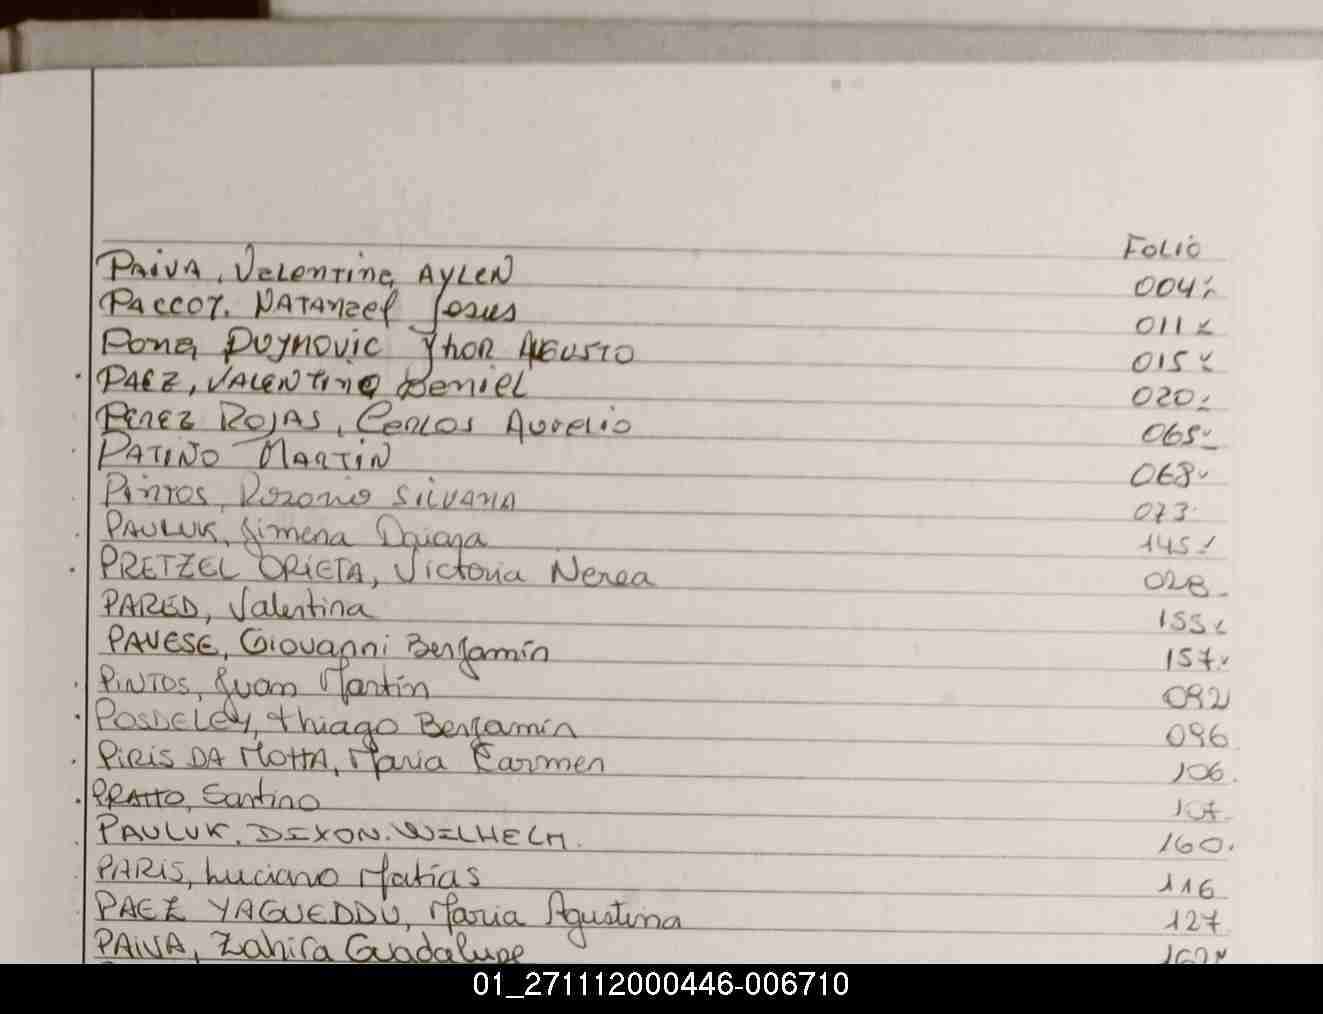 FOLIO
PAIVA, Valentina AYLEN 004
PACCOT, NATANAEL Jesus 011
DUJMOVIC Jhor AUGUSTO 015
PAEZ, VALENTINO Daniel 020
PEREZ ROJAS, Carlos Aurelio 065
PATIÑO MARTIN 068
PINTOS, Rosario SILVANA 073
PAULUK, Jimena Daiana 145
PRETZEL ORIETA, Victoria Nerea 028
PARED, Valentina 155
PAVESE, Giovanni Benjamín 157
PINTOS, Juan Martín 092
POSDELEY, thiago Benjamín 096
PIRIS DA MOTTA, María Carmen 106
PRATTO, Santino 107
PAULUK. DIXON. WILHELM. 160.
PARIS, Luciano Matías 116
PAEZ YAGUEDDU, María Agustina 127
PAIVA, Zahira Guadalupe
01_271112000446-006710